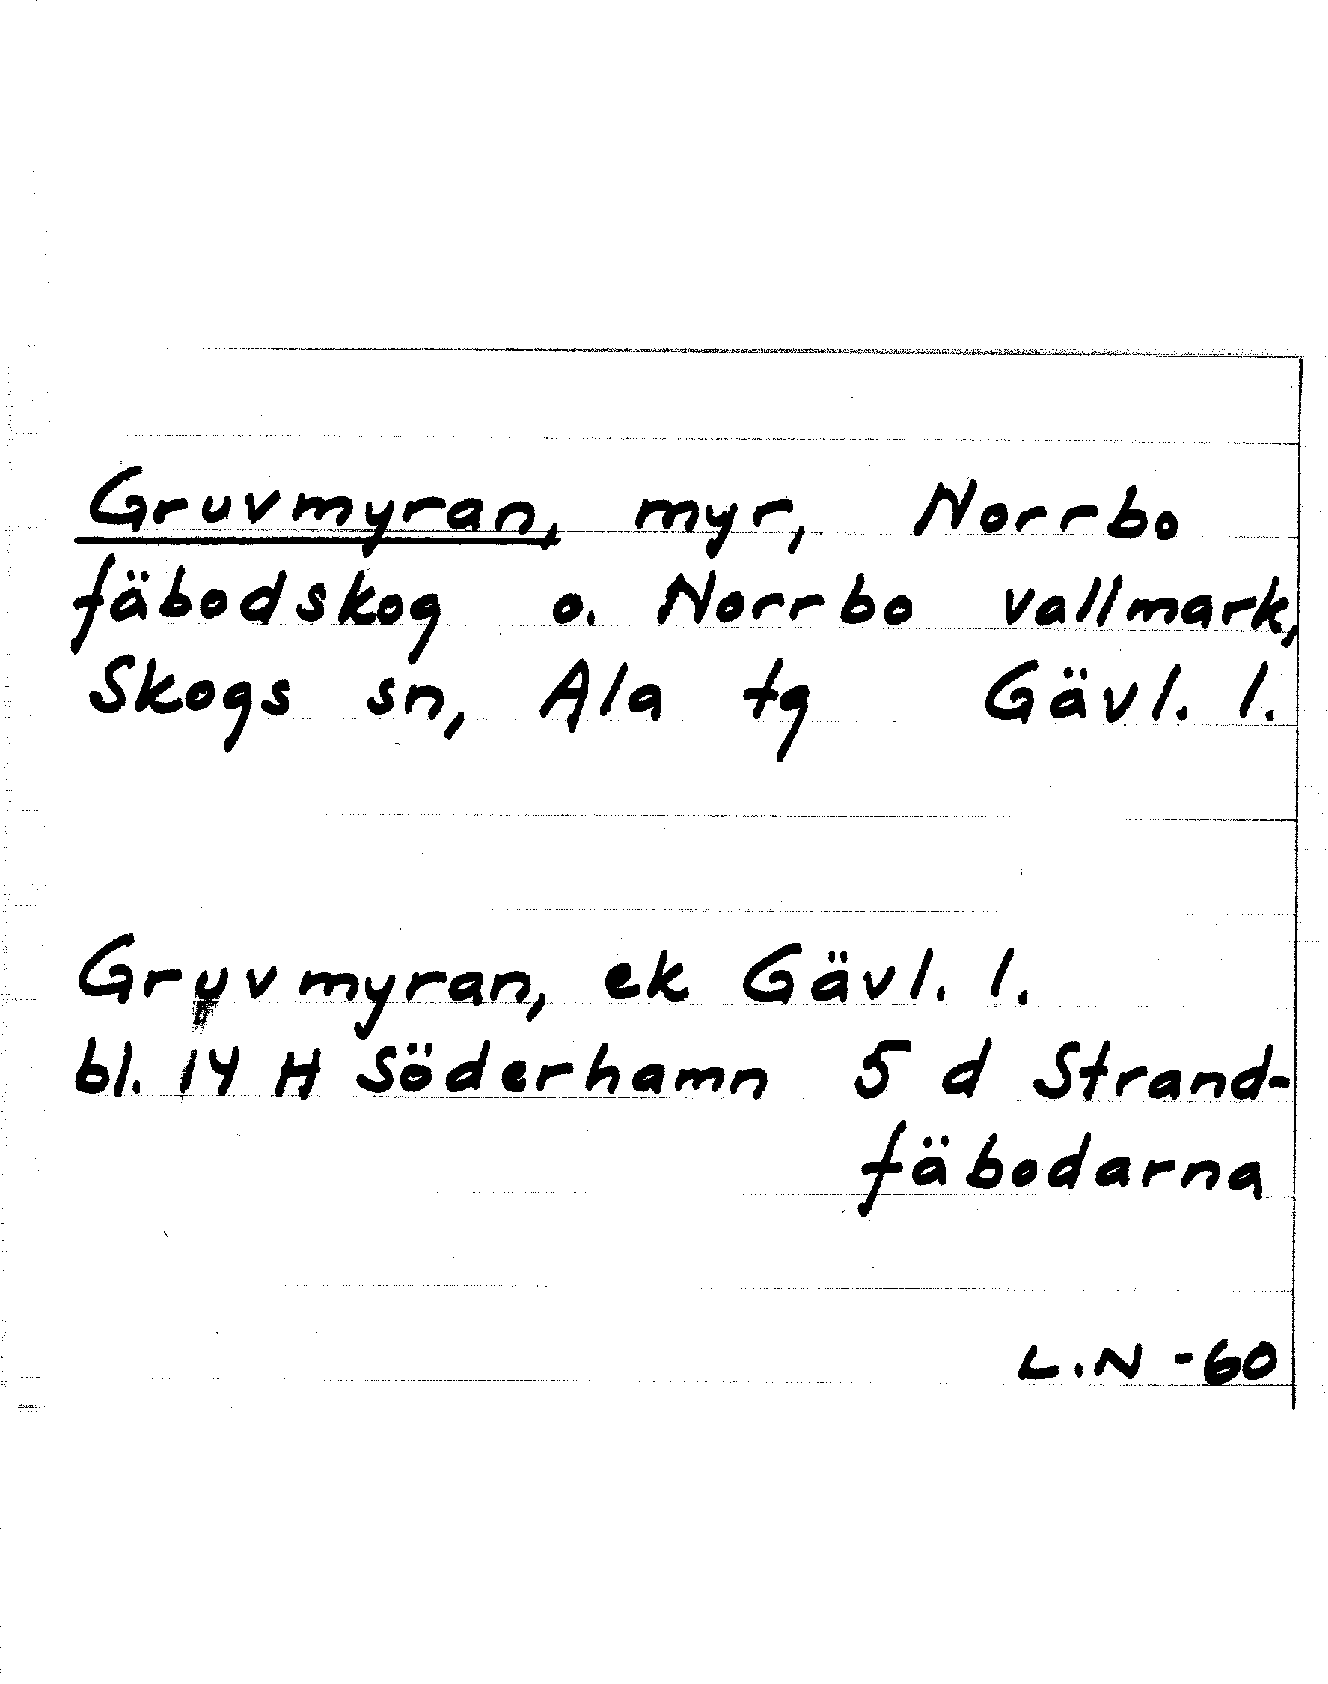 Gruvmyran, myr, Norrbo
fäbodskog o. Norrbo vallmark,
Skogs sn, Ala tg Gävl. l.
Gruvmyran, ek Gävl. l.
bl. 14 H Söderhamn 5 d Strand-
fäbodarna
L.N -60